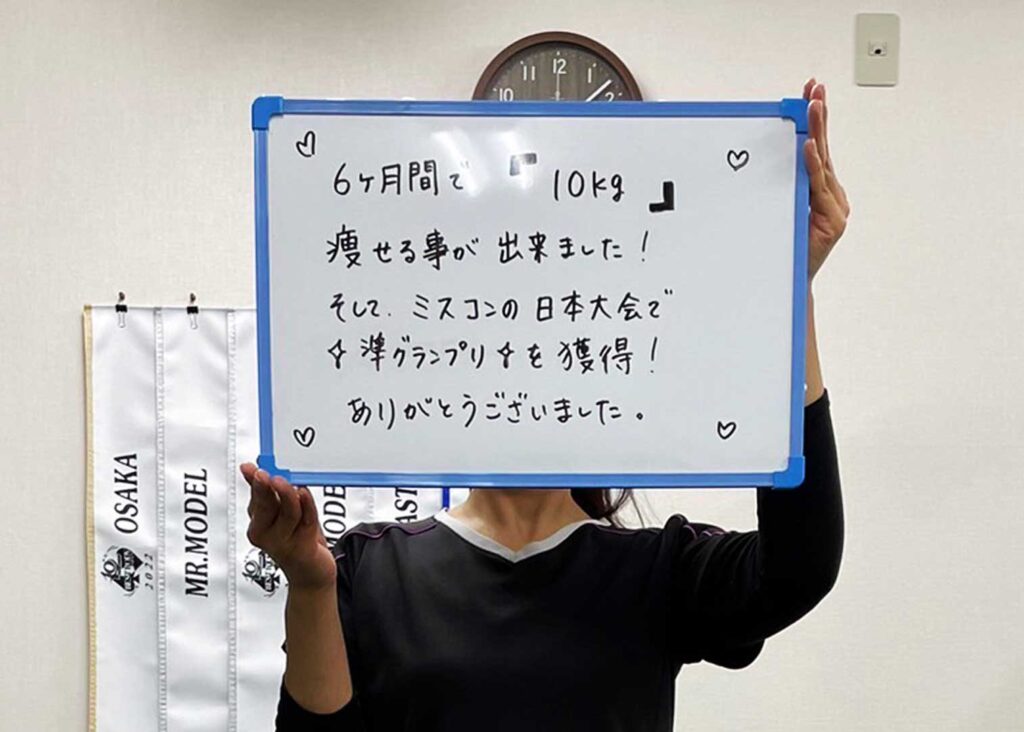 11 12 1
10 2
6ケ月間で『10kg』
痩せる事が出来ました!
そして、ミスコンの日本大会で
✧準グランプリ✧を獲得!
ありがとうございました。
OSAKA
2022
MR.MODEL